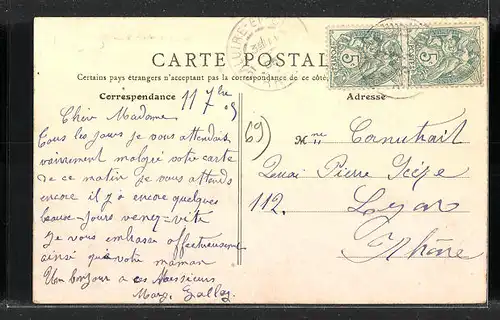 CARTE POSTALE
Certains pays étrangers n'acceptent pas la correspondance de ce côté
Correspondance
Adresse
11 7bre 05
Chère Madame
Tous les jours je vous attendais
vainement malgré votre carte
de ce matin je vous attends
encore il y a encore quelques
beaux jours venez vite
Je vous embrasse affectueusement
ainsi que votre maman
Un bonjour a ces Messieurs
Marg. Gallez
69
Mme Cornutrait
Quai Pierre Scize
112. Lyon
Rhône
5
5